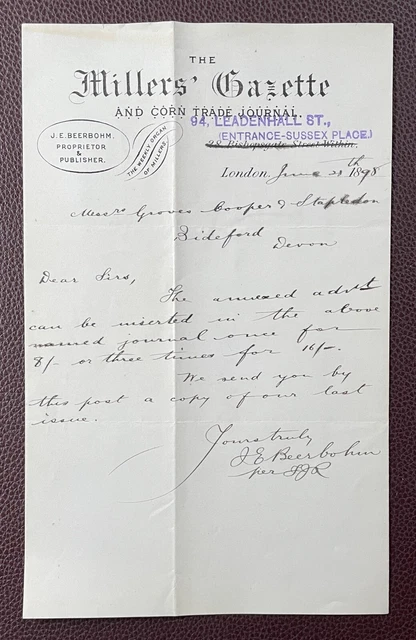 THE
Millers' Gazette
AND CORN TRADE JOURNAL.
94, LEADENHALL ST.,
(ENTRANCE-SUSSEX PLACE.)
28 Bishopsgate Street Within.
J. E. BEERBOHM.
PROPRIETOR
&
PUBLISHER.
THE WEEKLY ORGAN
OF MILLERS.
London, June 28th 1898
Messrs Groves Cooper & Stapledon
Bideford
Devon
Dear Sirs,
The annexed advt
can be inserted in the above
named journal once for
8/- or three times for 16/-.
We send you by
this post a copy of our last
issue.
Yours truly
J E Beerbohm
per